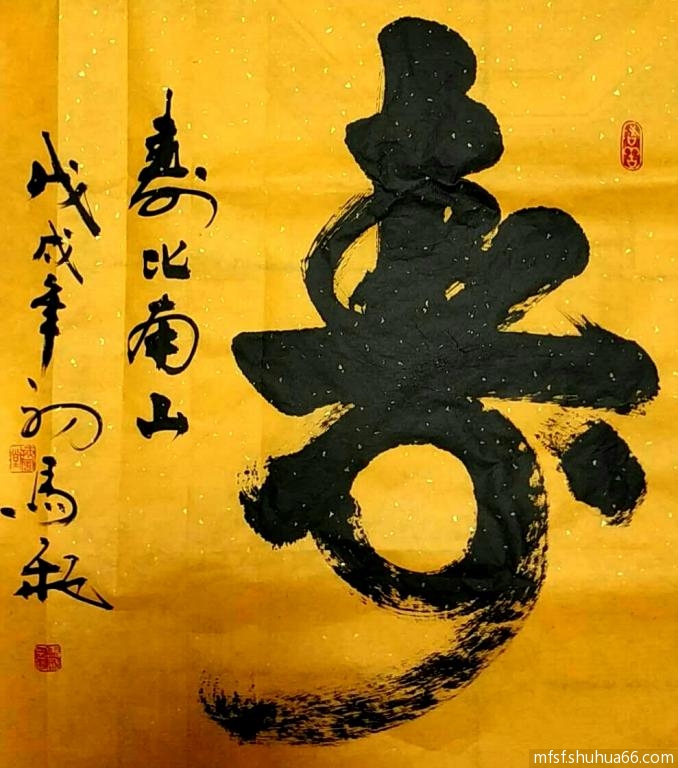 寿
寿比南山
戊戌年初馬
mfsf.shuhua66.com